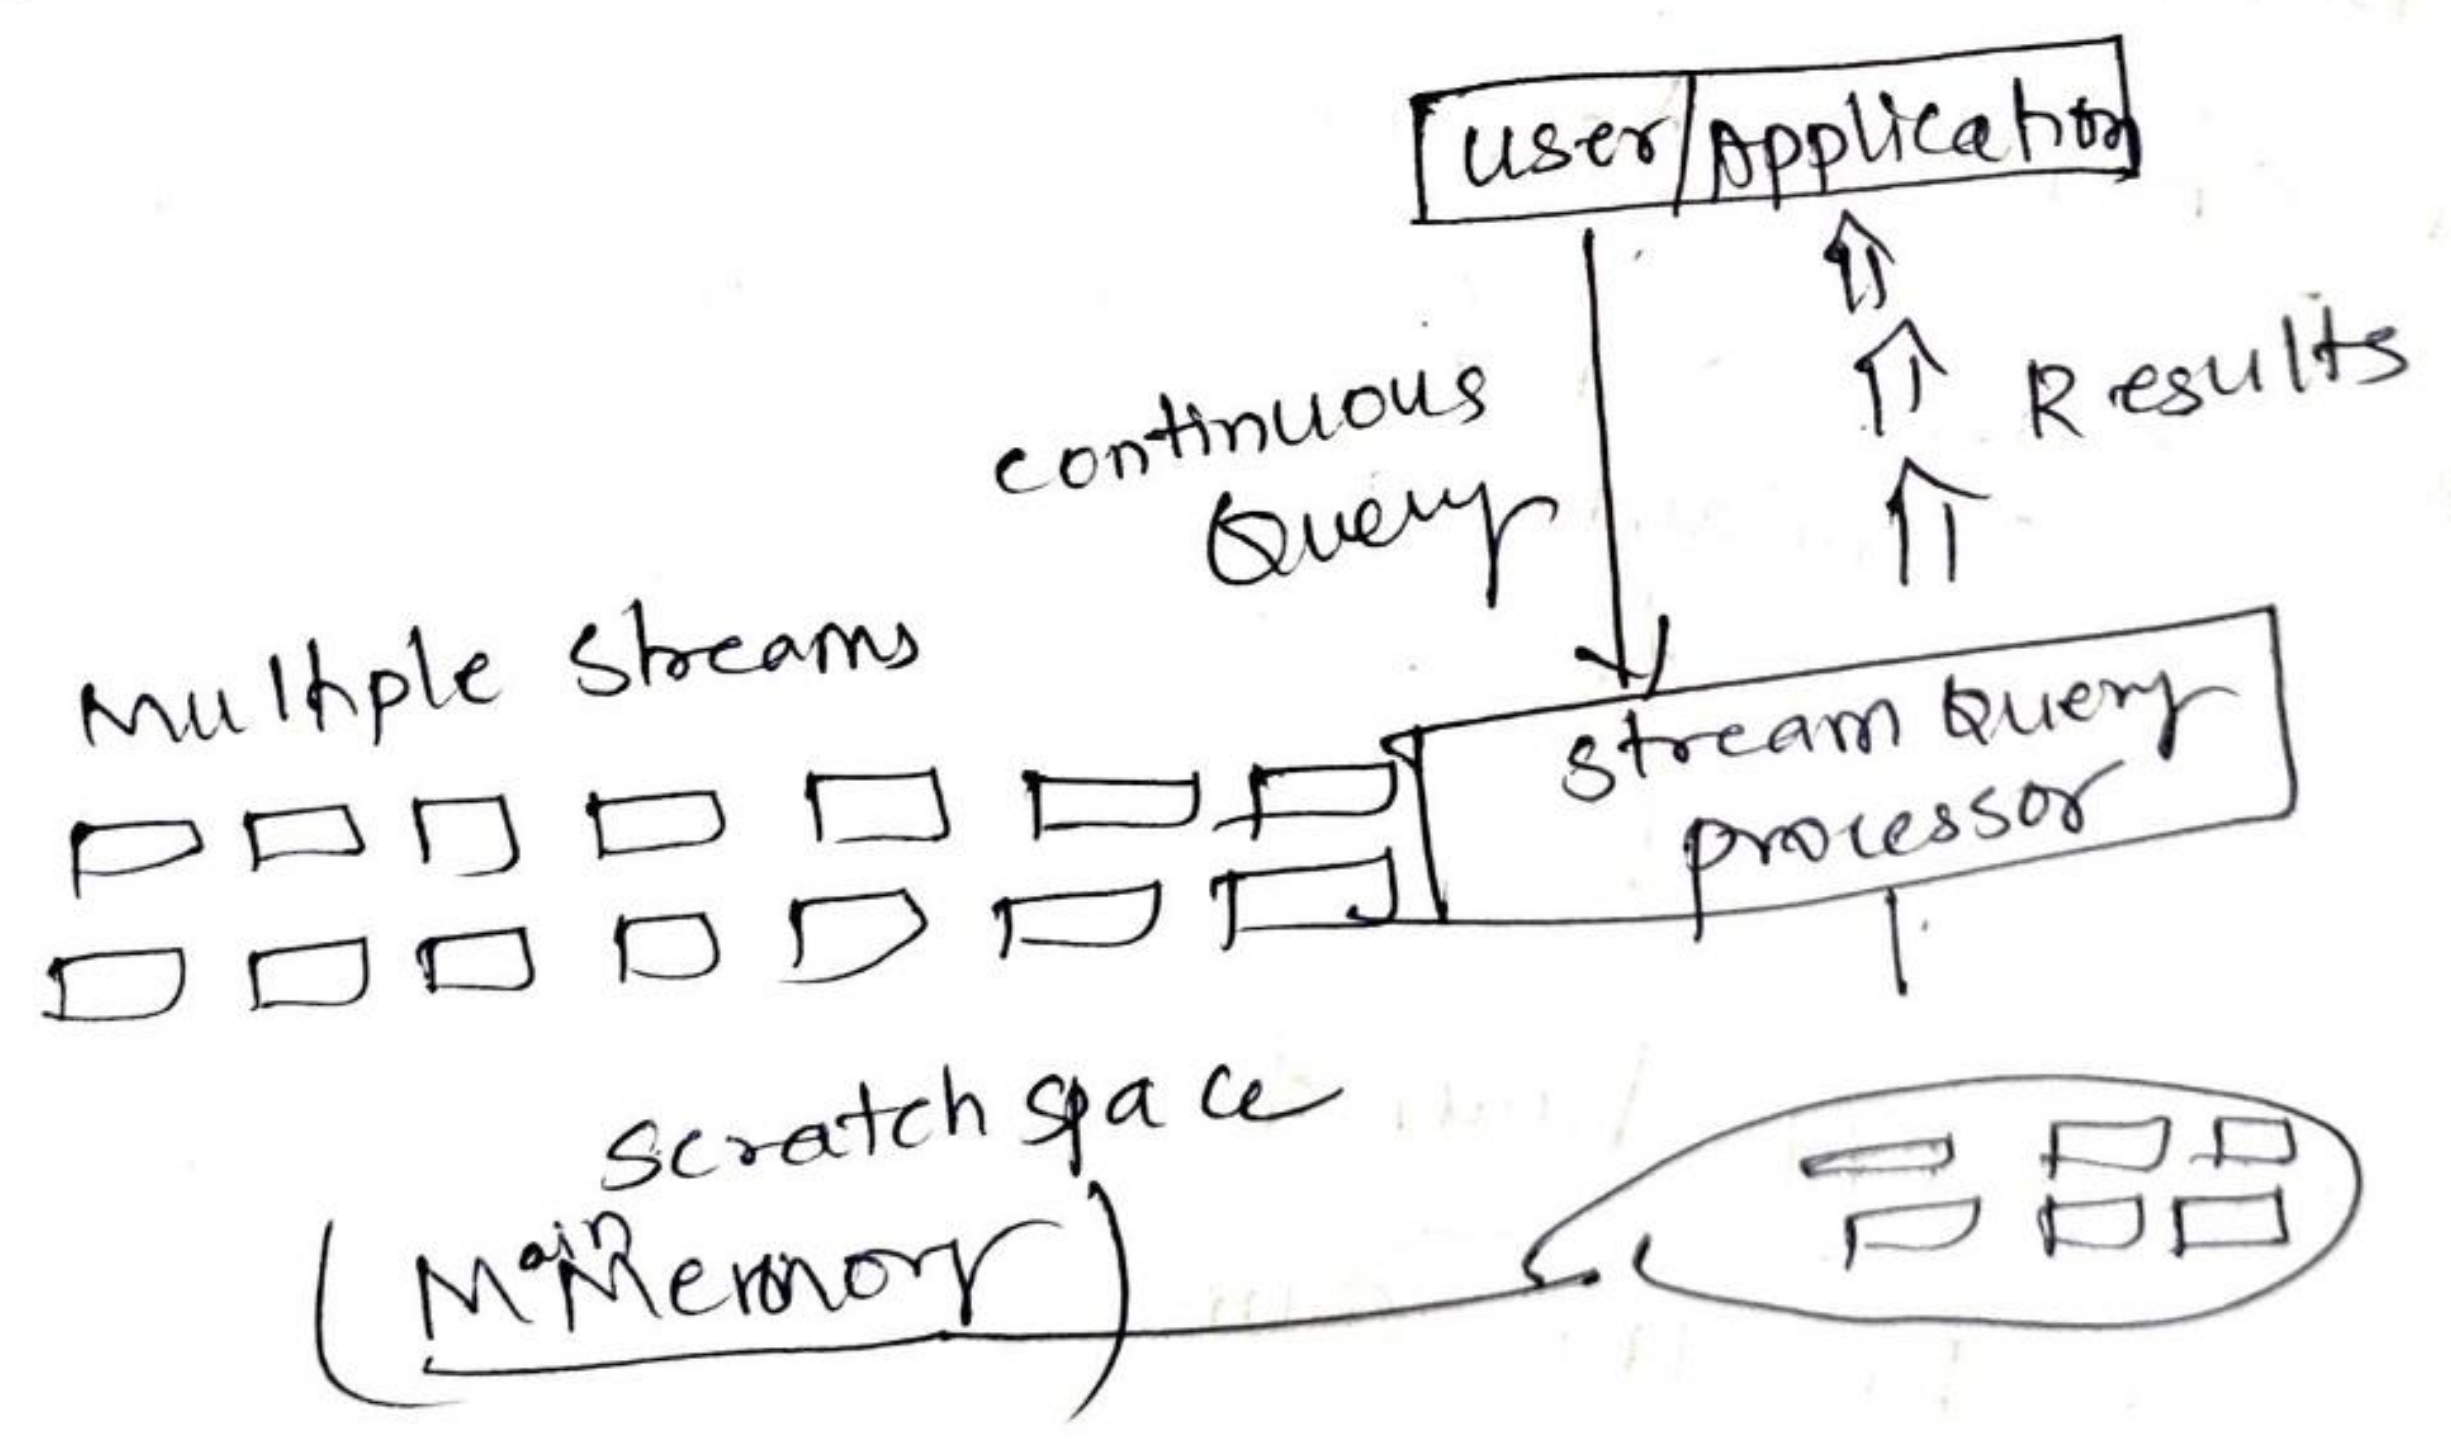 user/Application
continuous
Query
Results
Multiple Streams
stream Query
processor
scratch space
(Main Memory)